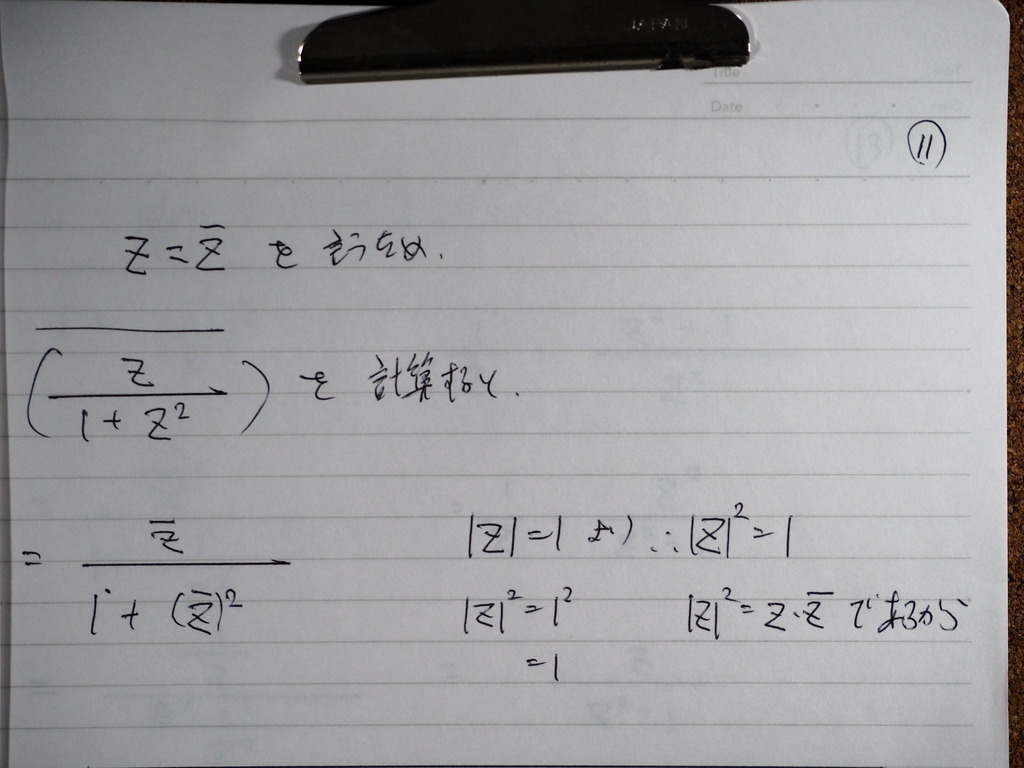 JAPAN
Title
Date
⑬ ⑪
z = z̅ を 示すため、
‾(z / (1 + z²)) を 計算すると、
= z̅ / (1 + (z̅)²)
|z| = 1 より ∴ |z|² = 1
|z|² = 1² |z|² = z・z̅ であるから
= 1